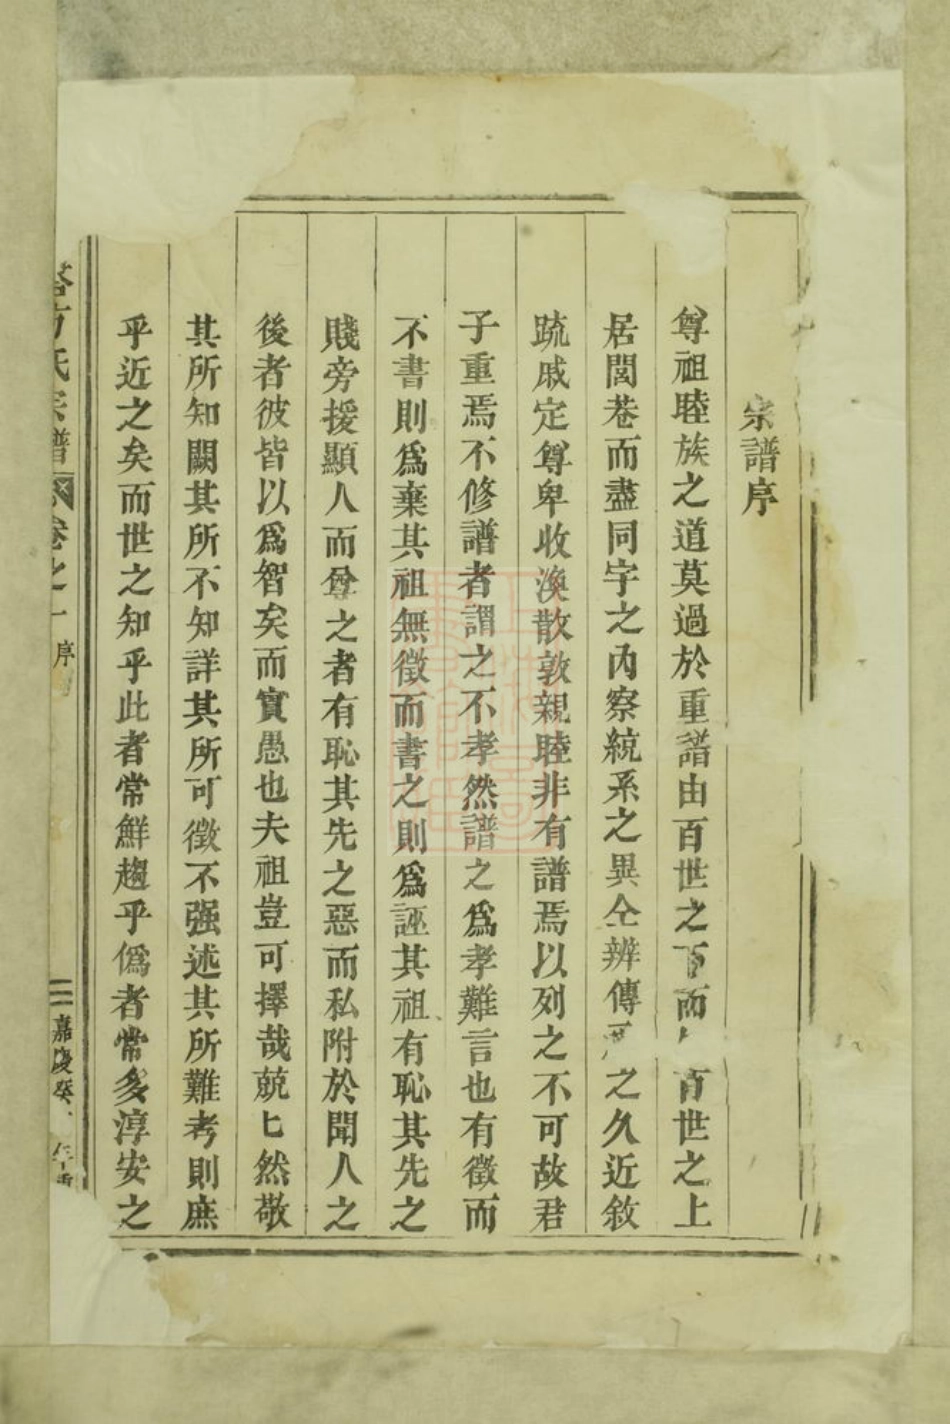 宗譜序
尊祖睦族之道莫過於重譜由百世之下而百世之上
居閭巷而盡同宇之內察統系之異仝辨傳之久近敘
疏戚定尊卑收渙散敦親睦非有譜焉以列之不可故君
子重焉不修譜者謂之不孝然譜之爲孝難言也有徵而
不書則爲棄其祖無徵而書之則爲誣其祖有恥其先之
賤旁援顯人而尊之者有恥其先之惡而私附於聞人之
後者彼皆以爲智矣而實愚也夫祖豈可擇哉兢匕然敬
其所知闕其所不知詳其所可徵不强述其所難考則庶
乎近之矣而世之知乎此者常鮮趨乎僞者常多淳安之
方氏宗譜 卷之一 序 嘉慶癸